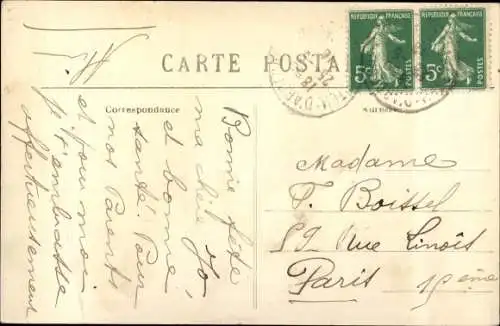 CARTE POSTALE
Correspondance
REPUBLIQUE FRANÇAISE
5c
POSTES
REPUBLIQUE FRANÇAISE
5c
POSTES
Bonne fête
ma chère Yo,
et bonne
santé. Pour
nos Parents
et pour moi
je t'embrasse
affectueusement
Madame
F. Boissel
59 Rue Linois
Paris 15ème